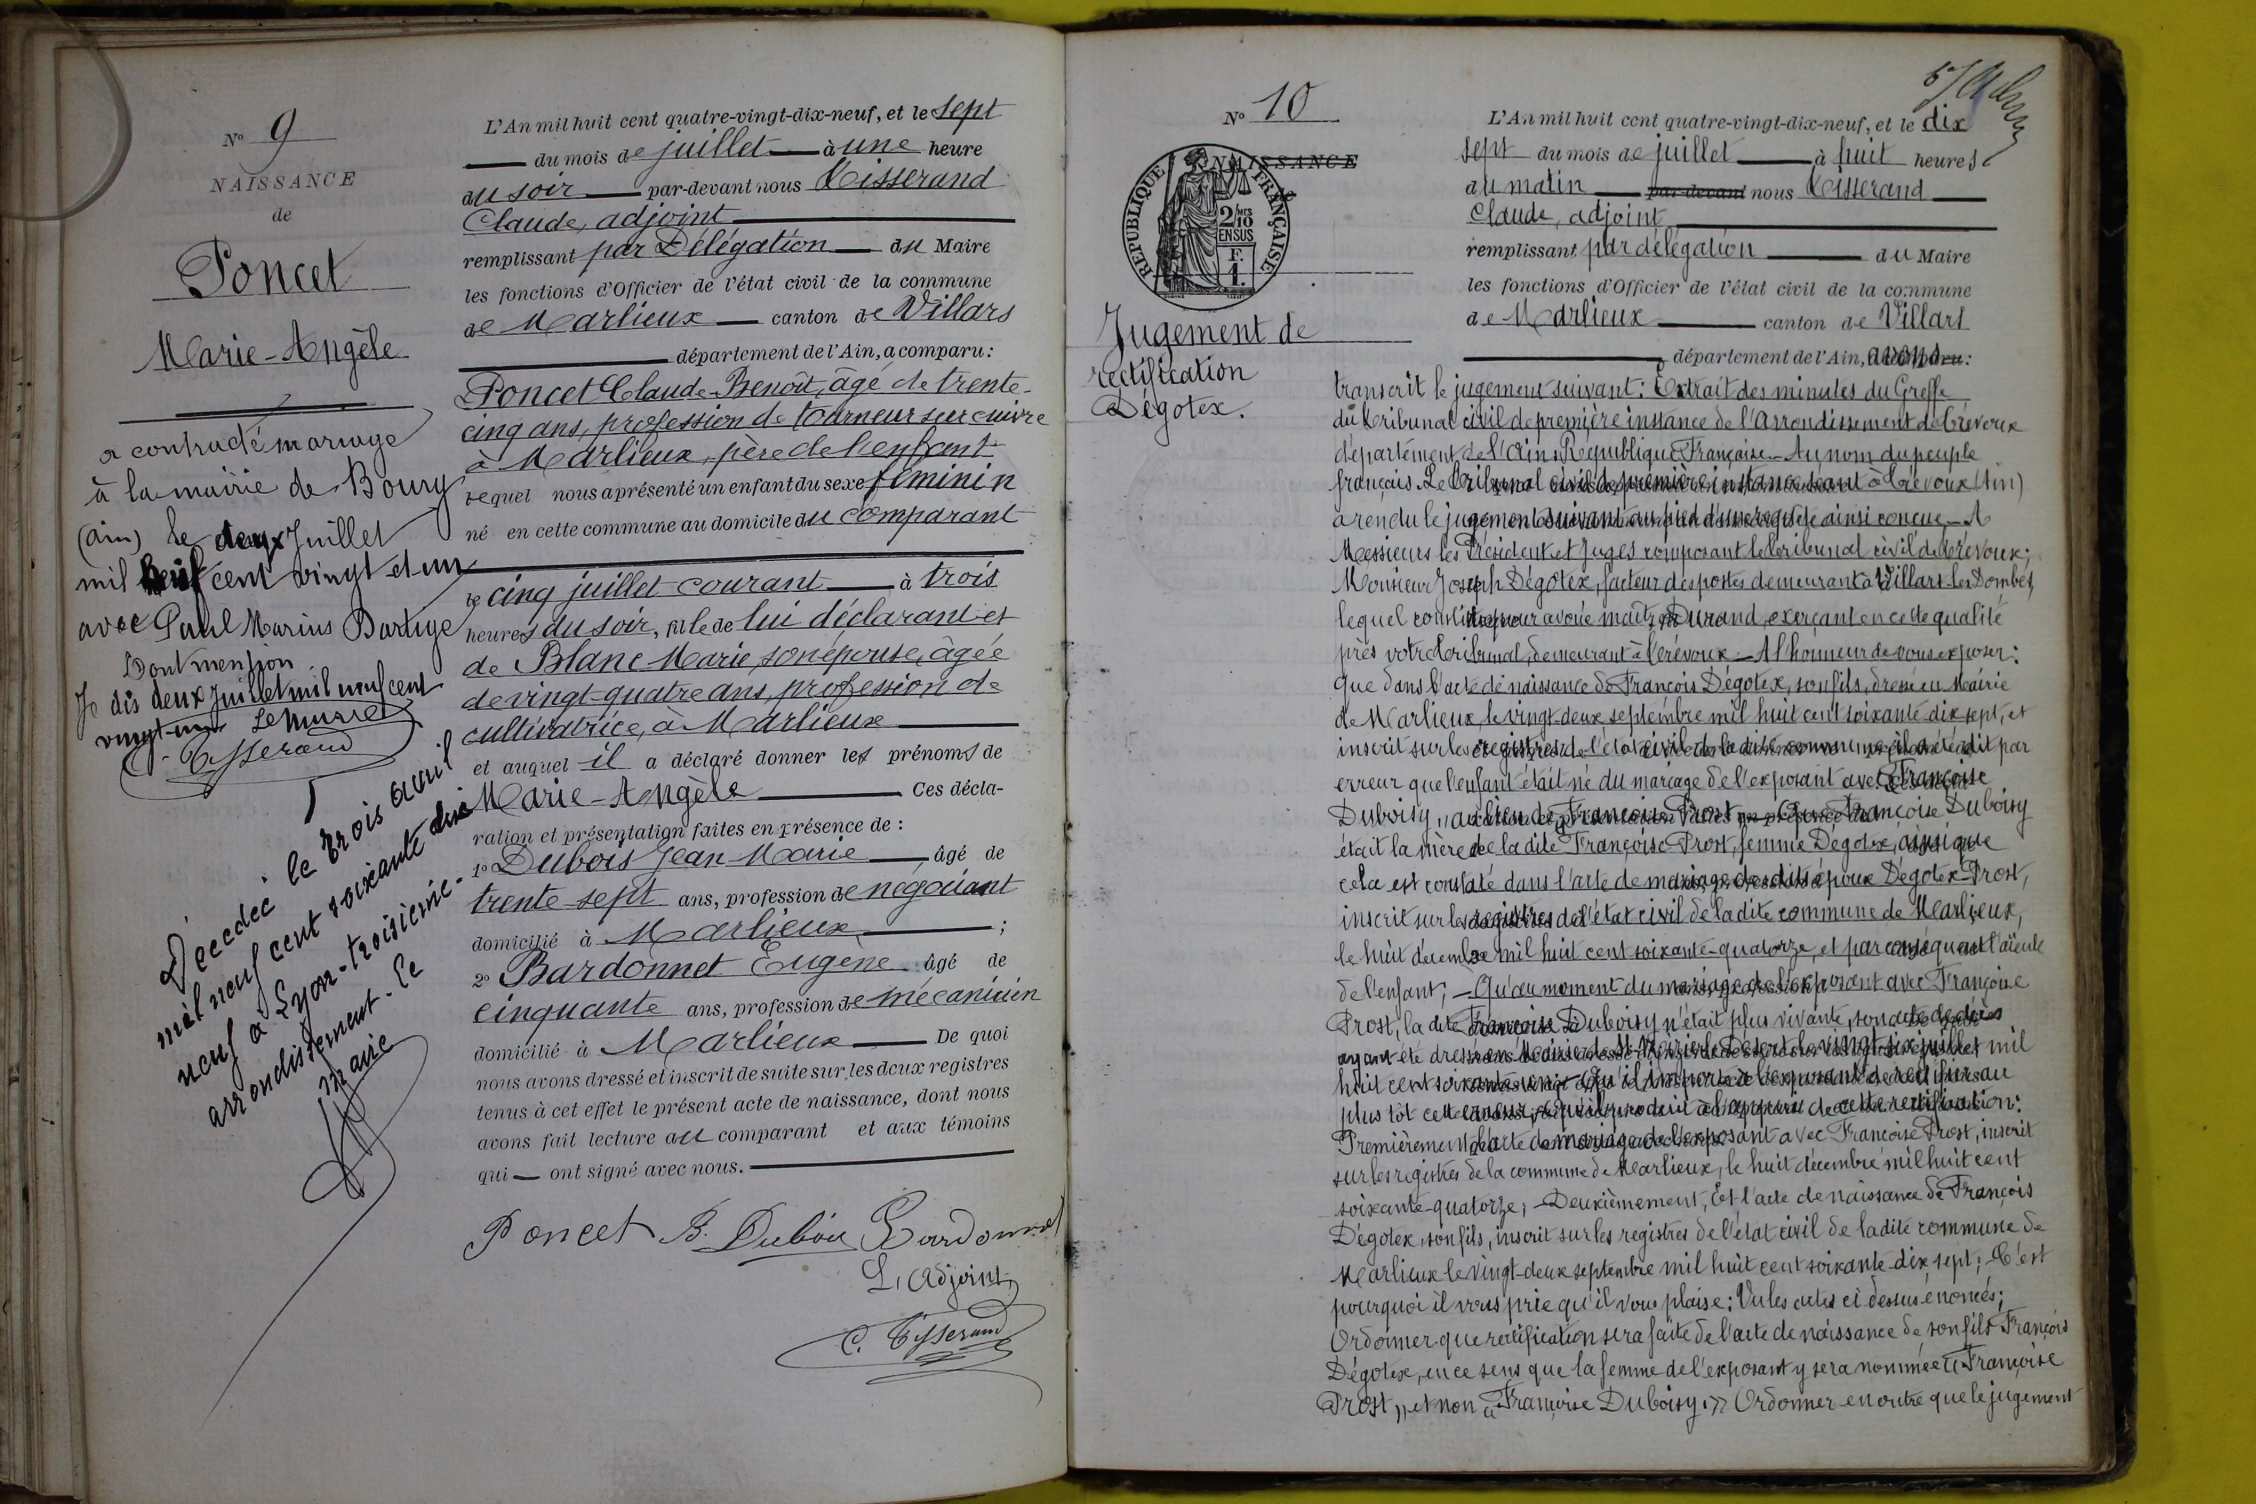 N° 9
NAISSANCE
de
Poncet
Marie-Angèle
a contracté mariage
à la mairie de Bourg
(ain) le deux Juillet
mil neuf cent vingt et un
avec Paul Marius
Dont mention.
Je dis deux Juillet mil neuf cent
vingt-un Le Maire
Tisserand
Décédée le trois avril
mil neuf cent soixante dix
neuf à Lyon-troisième
arrondissement. Le
maire
L'An mil huit cent quatre-vingt-dix-neuf, et le sept
du mois de juillet à une heure
du soir par-devant nous Tisserand
Claude, adjoint
remplissant par Délégation du Maire
les fonctions d'Officier de l'état civil de la commune
de Marlieux canton de Villars
département de l'Ain, a comparu:
Poncet Claude-Benoît, âgé de trente-
cinq ans, profession de tourneur sur cuivre
à Marlieux, père de l'enfant
lequel nous a présenté un enfant du sexe féminin
né en cette commune au domicile du comparant
le cinq juillet courant à trois
heures du soir, fille de lui déclarant et
de Blanc Marie, son épouse, âgée
de vingt-quatre ans, profession de
cultivatrice, à Marlieux
et auquel il a déclaré donner les prénoms de
Marie-Angèle Ces décla-
ration et présentation faites en présence de :
1° Dubois Jean Marie âgé de
trente-sept ans, profession de négociant
domicilié à Marlieux ;
2° Bardonnet Eugène âgé de
cinquante ans, profession de mécanicien
domicilié à Marlieux De quoi
nous avons dressé et inscrit de suite sur les deux registres
tenus à cet effet le présent acte de naissance, dont nous
avons fait lecture au comparant et aux témoins
qui ont signé avec nous.
Poncet B. Dubois Bardonnet
L'adjoint,
C. Tisserand
N° 10
NAISSANCE
RÉPUBLIQUE FRANÇAISE
2/10 MES
EN SUS
F.
1.
Jugement de
rectification
Dégotex.
L'An mil huit cent quatre-vingt-dix-neuf, et le dix
sept du mois de juillet à huit heures
du matin par-devant nous Tisserand
Claude, adjoint
remplissant par délégation du Maire
les fonctions d'Officier de l'état civil de la commune
de Marlieux canton de Villars
département de l'Ain, avons
transcrit le jugement suivant: Extrait des minutes du Greffe
du tribunal civil de première instance de l'arrondissement de Trévoux
département de l'Ain. République Française. Au nom du peuple
français. Le Tribunal civil de première instance séant à Trévoux (Ain)
a rendu le jugement suivant au pied d'une requête ainsi conçue. A
Messieurs les Président et Juges composant le tribunal civil de Trévoux:
Monsieur Joseph Dégotex, facteur des postes demeurant à Villars-les-Dombes,
lequel constitue pour avoué maître Durand, exerçant en cette qualité
près votre tribunal, demeurant à Trévoux. A l'honneur de vous exposer:
Que dans l'acte de naissance de François Dégotex, son fils, dressé en Mairie
de Marlieux, le vingt-deux septembre mil huit cent soixante-dix-sept, et
inscrit sur les registres de l'état civil de la dite commune, il a été dit par
erreur que l'enfant était né du mariage de l'exposant avec "Françoise
Duboisy", au lieu de Françoise Prost. Que Françoise Duboisy
était la mère de la dite Françoise Prost, femme Dégotex, ainsi que
cela est constaté dans l'acte de mariage des dits époux Dégotex-Prost,
inscrit sur les registres de l'état civil de la dite commune de Marlieux,
le huit décembre mil huit cent soixante-quatorze, et par conséquent l'aïeule
de l'enfant; Qu'au moment du mariage de l'exposant avec Françoise
Prost, la dite Françoise Duboisy n'était plus vivante, son acte de décès
ayant été dressé en Mairie de St Nizier-le-Désert le vingt-six juillet mil
huit cent soixante Qu'il importe à l'exposant de rectifier au
plus tôt cette erreur; qu'il produit à l'appui de cette rectification:
Premièrement, l'acte de mariage de l'exposant avec Françoise Prost, inscrit
sur les registres de la commune de Marlieux, le huit décembre mil huit cent
soixante-quatorze; Deuxièmement, Et l'acte de naissance de François
Dégotex, son fils, inscrit sur les registres de l'état civil de la dite commune de
Marlieux le vingt-deux septembre mil huit cent soixante-dix-sept; C'est
pourquoi il vous prie qu'il vous plaise: Vu les actes ci dessus énoncés;
Ordonner que rectification sera faite de l'acte de naissance de son fils François
Dégotex, en ce sens que la femme de l'exposant y sera nommée "Françoise
Prost", et non "Françoise Duboisy." Ordonner en outre que le jugement